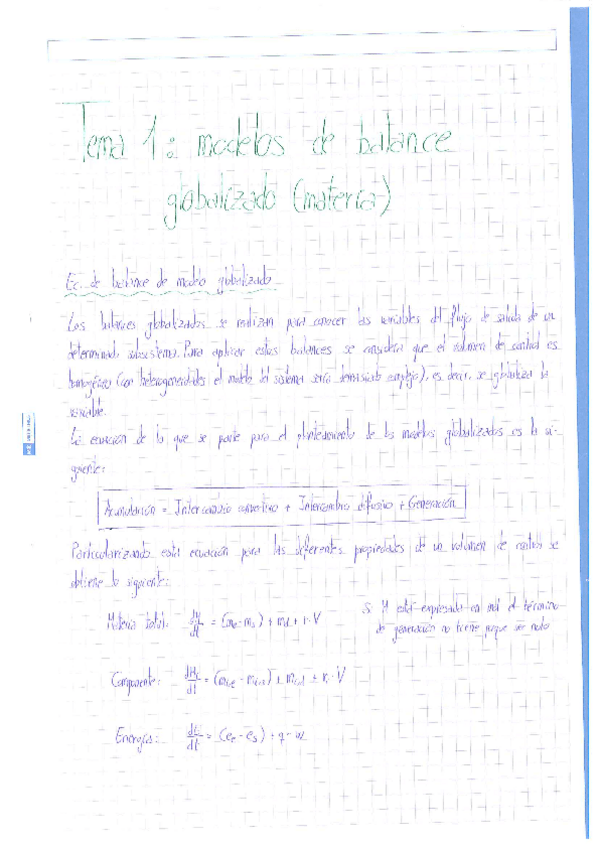 Tema 1: modelos de balance
globalizado (materia)
Ec. de balance de modelo globalizado
Los balances globalizados se realizan para conocer las variables del flujo de salida de un
determinado subsistema. Para aplicar estos balances se considera que el volumen de control es
homogéneo (con heterogeneidades el modelo del sistema sería demasiado complejo), es decir, se globaliza la
variable.
La ecuación de la que se parte para el planteamiento de los modelos globalizados es la si-
guiente:
Acumulación = Intercambio convectivo + Intercambio difusivo + Generación
Particularizando esta ecuación para las diferentes propiedades de un volumen de control se
obtiene lo siguiente:
Materia total: dM/dt = (me - ms) + md + r·V
Si M está expresado en mol el término
de generación no tiene porque ser nulo
Componente:
Energía: dE/dt = (ee - es) + q - w